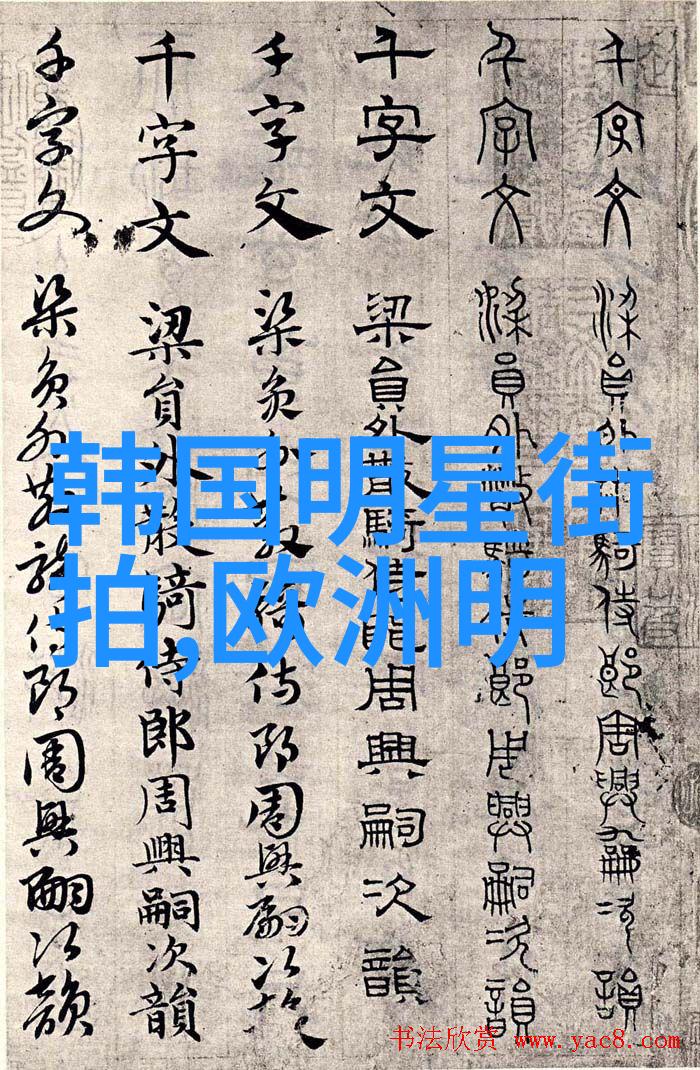 千字文 梁員外散騎侍郎周興嗣次韻
千字文 梁員外散騎侍郎周興嗣次韻
千字文 梁員外散騎侍郎周興嗣次韻
千字文 梁員外散騎侍郎周興嗣次韻
千字文 梁員外散騎侍郎周興嗣次韻
千字文 梁員外散騎侍郎周興嗣次韻
韩国明星街
拍,欧洲明
书法欣赏 www.yac8.com